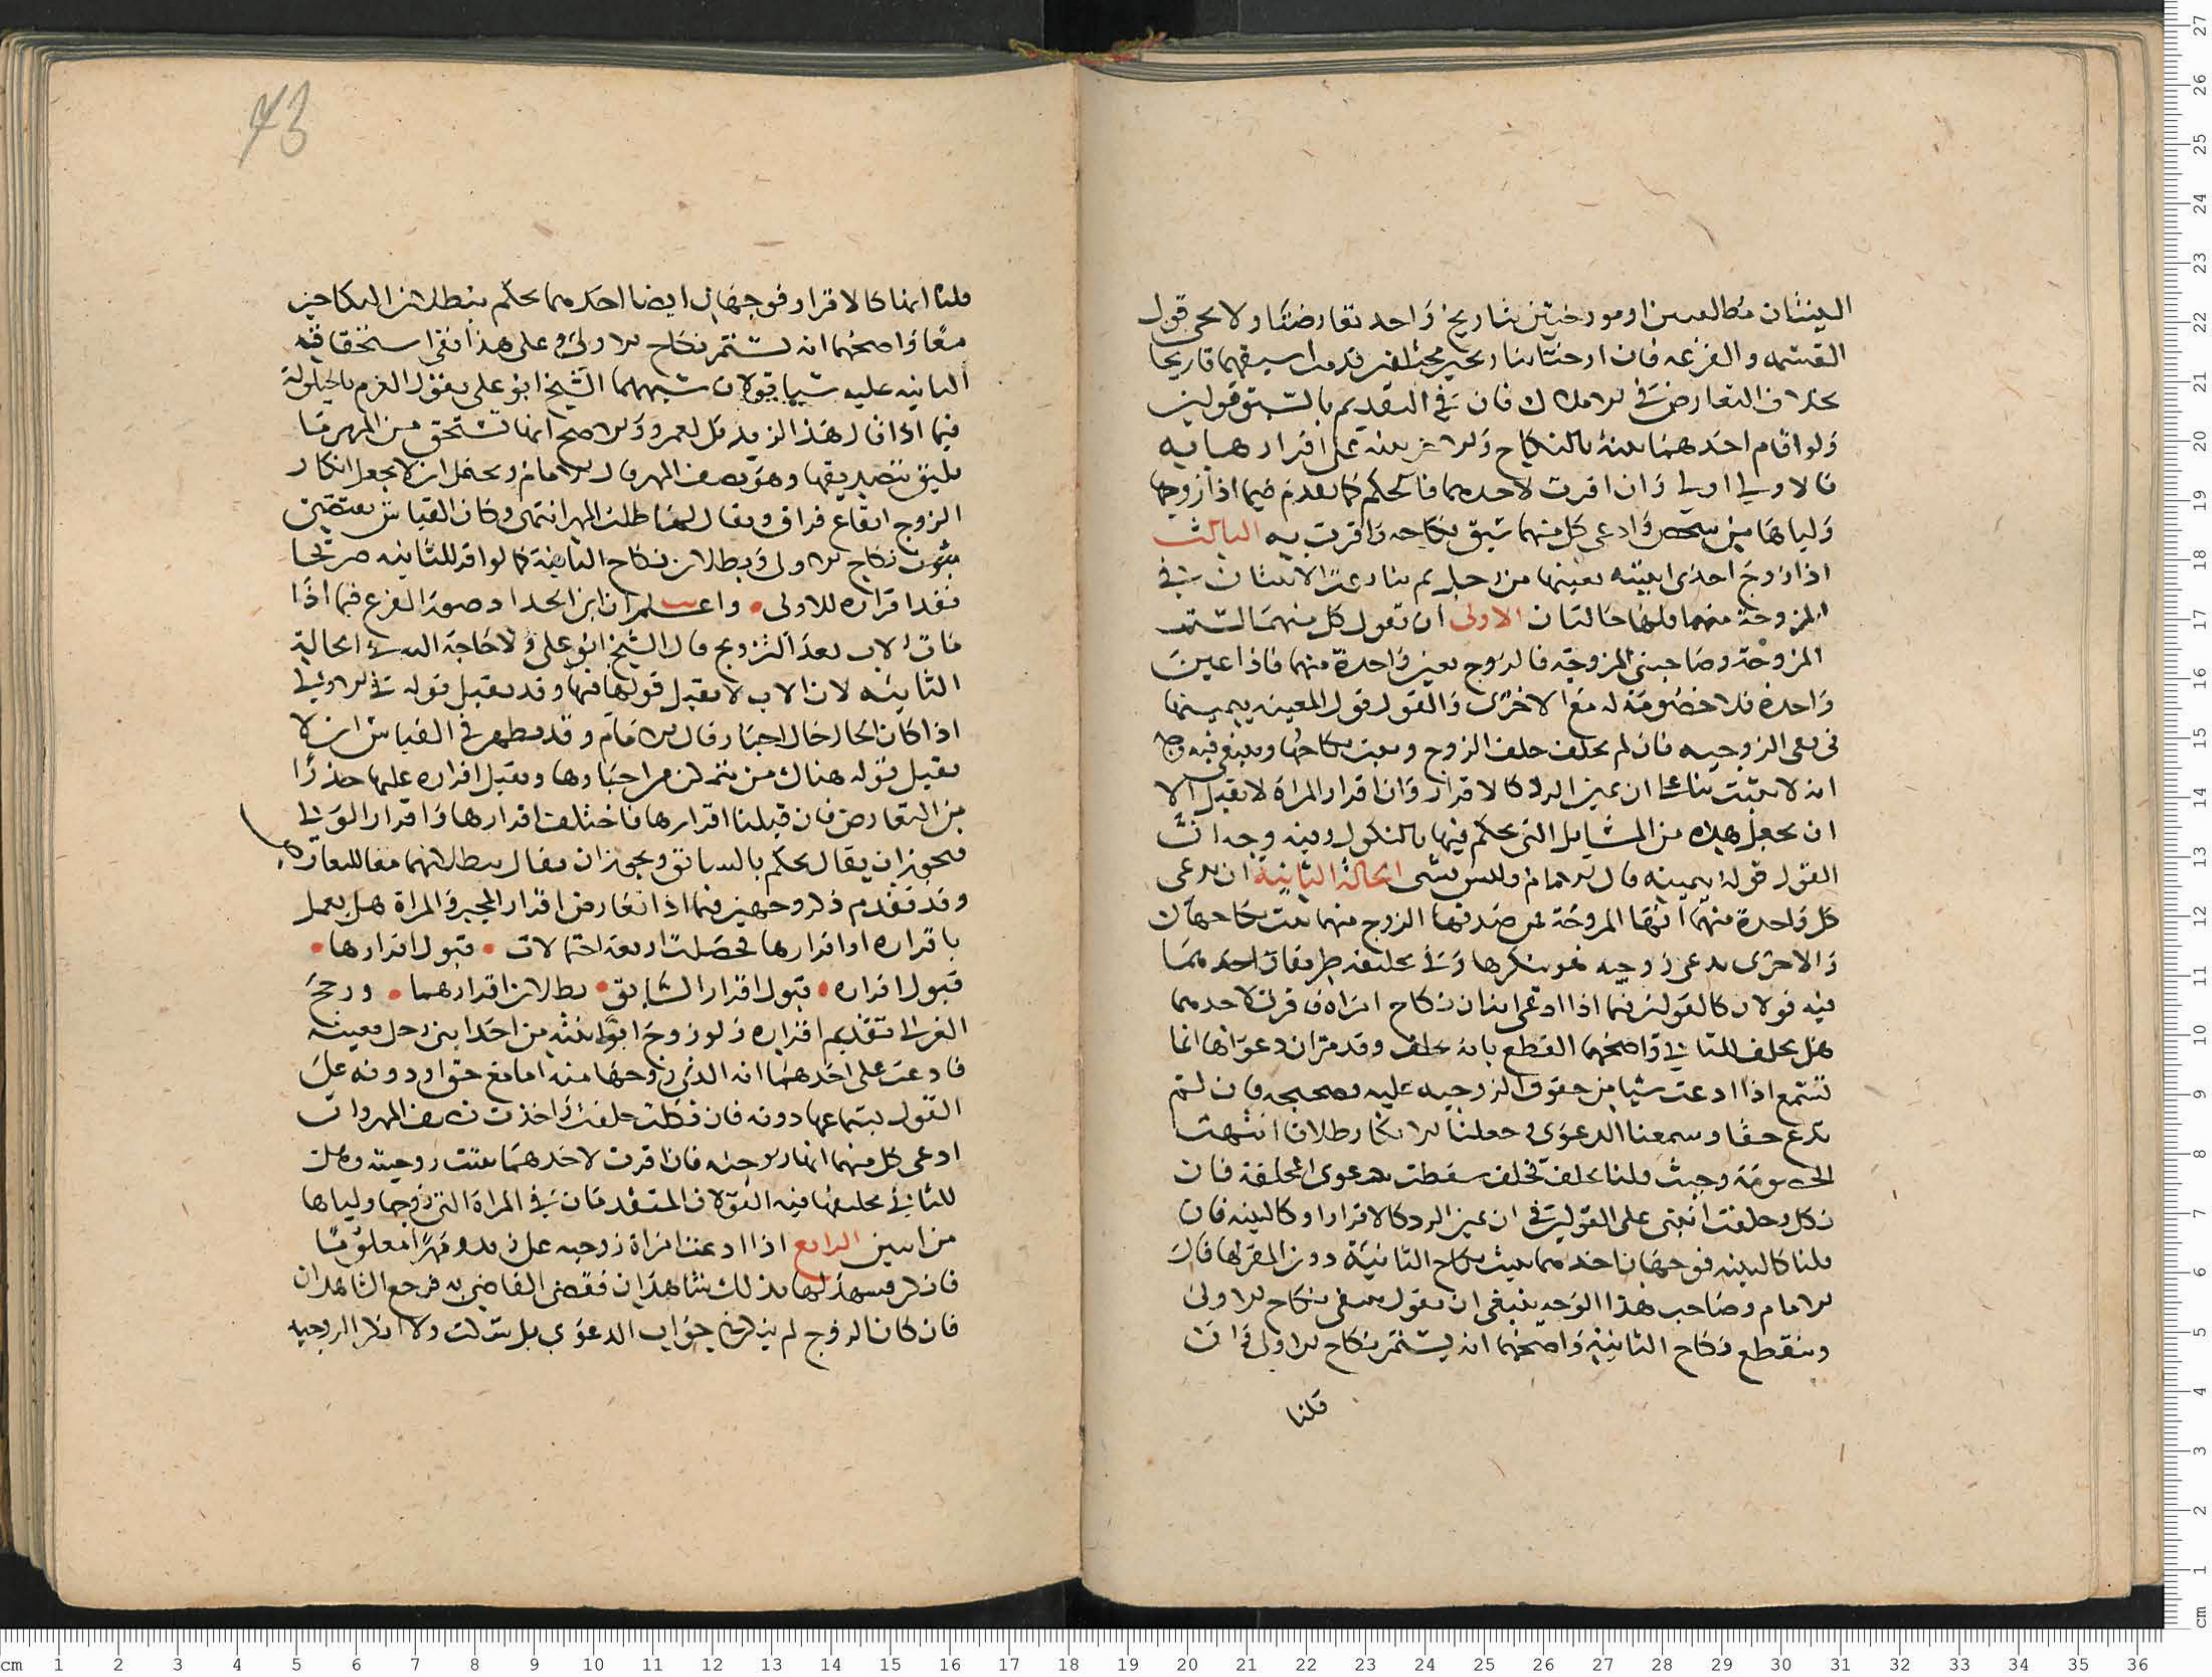 البينتان مطلقتين او مورختين بتاريخ واحد تعارضتا ولا يجي قول
القسمه والقرعه فان ارختا بتاريخين مختلفين قدمت اسبقهما تاريخا
بخلاف التعارض في الاملاك فان في التقديم بالسبق قولين
ولو اقام احدهما بينة بالنكاح والاخر بينه على اقرارها به
فالاولى اولى وان اقرت لاحدهما فالحكم كما تقدم فيما اذا زوجها
ولياها من شخص وادعى كل منهما سبق نكاحه واقرت به الثالث
اذا زوج احدى ابنتيه بعينها من رجل ثم تنازعت الابنتان في
المزوجة منهما فلها حالتان الاولى ان تقول كل منهما لست
المزوجة وصاحبتي المزوجة فالزوج يعين واحدة منهما فاذا عين
واحدة فلا خصومة له مع الاخرى والقول قول المعينه بيمينها
في نفي الزوجيه فان لم تحلف حلف الزوج وثبت نكاحها وينبغي فيه وجه
انه لا يثبت بناء على ان يمين الرد كالاقرار وان اقرار المراة لا يقبل الا
ان يجعل هذه من المسايل التي يحكم فيها بالنكول وفيه وجه ان
القول قوله بيمينه قال الامام وليس بشي الحالة الثانية ان تدعي
كل واحدة منهما انها المزوجة فمن صدقها الزوج منهما ثبت نكاحها
والاخرى تدعي زوجيه هو ينكرها وفي تحليفه طريقان احدهما
فيه قولان كالقولين فيما اذا ادعى اثنان نكاح امراة فاقرت لاحدهما
هل يحلف للثاني واصحهما القطع بانه يحلف وقد مر ان دعواها انما
تسمع اذا ادعت شيا من حقوق الزوجيه عليه وصحيحه فان لم
تدع حقا وسمعنا الدعوى وجعلنا الانكار طلاقا انتهت
الخصومة وحيث قلنا يحلف فحلف سقطت دعوى المحلفة فان
نكل وحلفت انبنى على القولين في ان يمين الرد كالاقرار او كالبينه فان
قلنا كالبينه فوجهان احدهما يثبت نكاح الثانية دون المقر لها قال
الامام وصاحب هذا الوجه ينبغي ان يقول ينتفي نكاح الاولى
وينقطع نكاح الثانية واصحهما انه يستمر نكاح الاولى وان
قلنا
قلنا انها كالاقرار فوجهان ايضا احدهما يحكم ببطلان النكاحين
معا واصحهما انه يستمر نكاح الاولى وعلى هذا ففي استحقاق
الثانيه عليه شيا قولان شبههما الشيخ ابو علي بقولي الغرم بالحيلولة
فيما اذا قال هذا لزيد بل لعمرو والاصح انها تستحق من المهر ما
يليق بتصديقها وهو نصف المهر قال الامام ويحتمل ان لا يجعل انكار
الزوج ايقاع فراق ويقال لها طلب المهر انتهى وكان القياس يقتضي
ثبوت نكاح الاولى وبطلان نكاح الثانية كما لو اقر للثانيه صريحا
بعد اقراره للاولى • واعلم ان ابن الحداد صور الفرع فيما اذا
مات الاب بعد التزويج قال الشيخ ابو علي ولا حاجة اليه في الحالة
الثانيه لان الاب لا يقبل قوله فيها وقد يقبل قوله في الاولى
اذا كان الحال حال اجبار قال الامام وقد يظهر في القياس ان لا
يقبل قوله هناك من يتمكن من اجبارها ويقبل اقراره عليها حذرا
من التعارض فان قبلنا اقرارها فاختلف اقرارها واقرار الولي
فيجوز ان يقال يحكم بالسابق ويجوز ان يقال ببطلانهما معا للتعارض
وقد تقدم ذكر وجهين فيما اذا تعارض اقرار المجبر والمراة هل يعمل
باقراره او اقرارها فحصلت اربعة احتمالات • قبول اقرارها •
قبول اقراره • قبول اقرار السابق • بطلان اقرارهما • ورجح
الغزالي تقديم اقراره ولو زوج ابو ابنته من احد ابني رجل معينه
فادعت على احدهما انه الذي زوجها منه اما مع حق او دونه على
القول بسماعها دونه فان نكل حلفت واخذت نصف المهر وان
ادعى كل منهما انها زوجته فان اقرت لاحدهما ثبتت زوجيته وهل
للثاني تحليفها فيه القولان المتقدمان في المراة التي زوجها ولياها
من اثنين الرابع اذا ادعت امراة زوجيه على زيد ومهرا معلوما
فانكر فشهد لها بذلك شاهدان فقضى القاضي به فرجع الشاهدان
فان كان الزوج لم يذكر في جواب الدعوى بل سكت ولا انكر الزوجيه